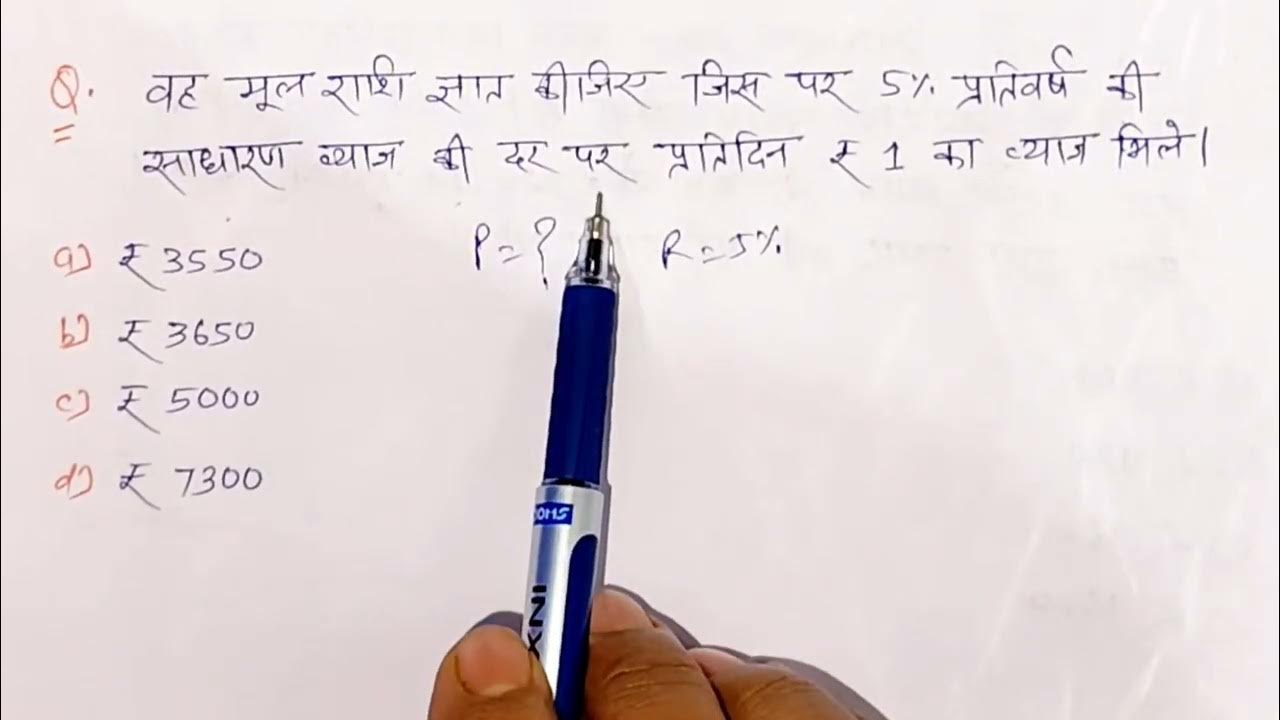 Q. वह मूल राशि ज्ञात कीजिए जिस पर 5% प्रतिवर्ष की
साधारण ब्याज की दर पर प्रतिदिन ₹ 1 का ब्याज मिले।
P = ? R = 5%
a) ₹ 3550
b) ₹ 3650
c) ₹ 5000
d) ₹ 7300
DOMS
INXO